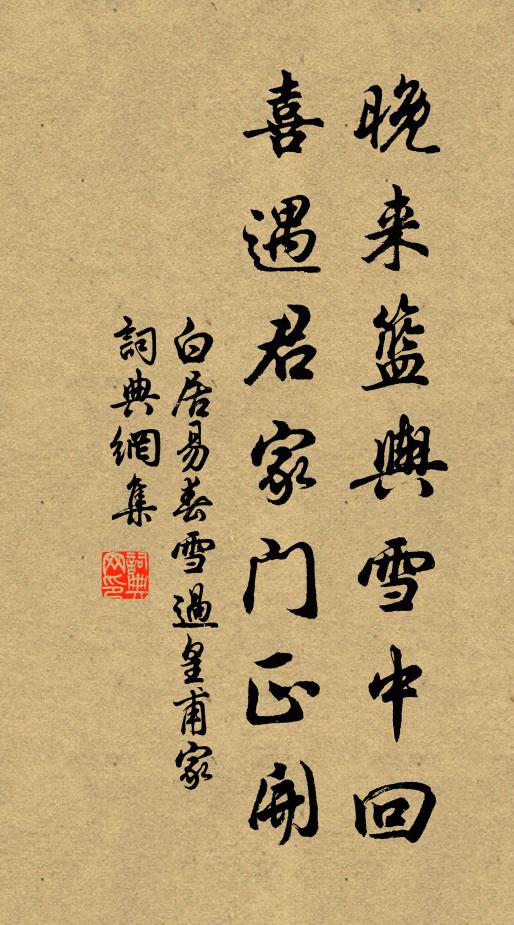 晚来籃輿雪中回
喜遇君家门正開
白居易春雪過皇甫家
詞典網集
詞典網印